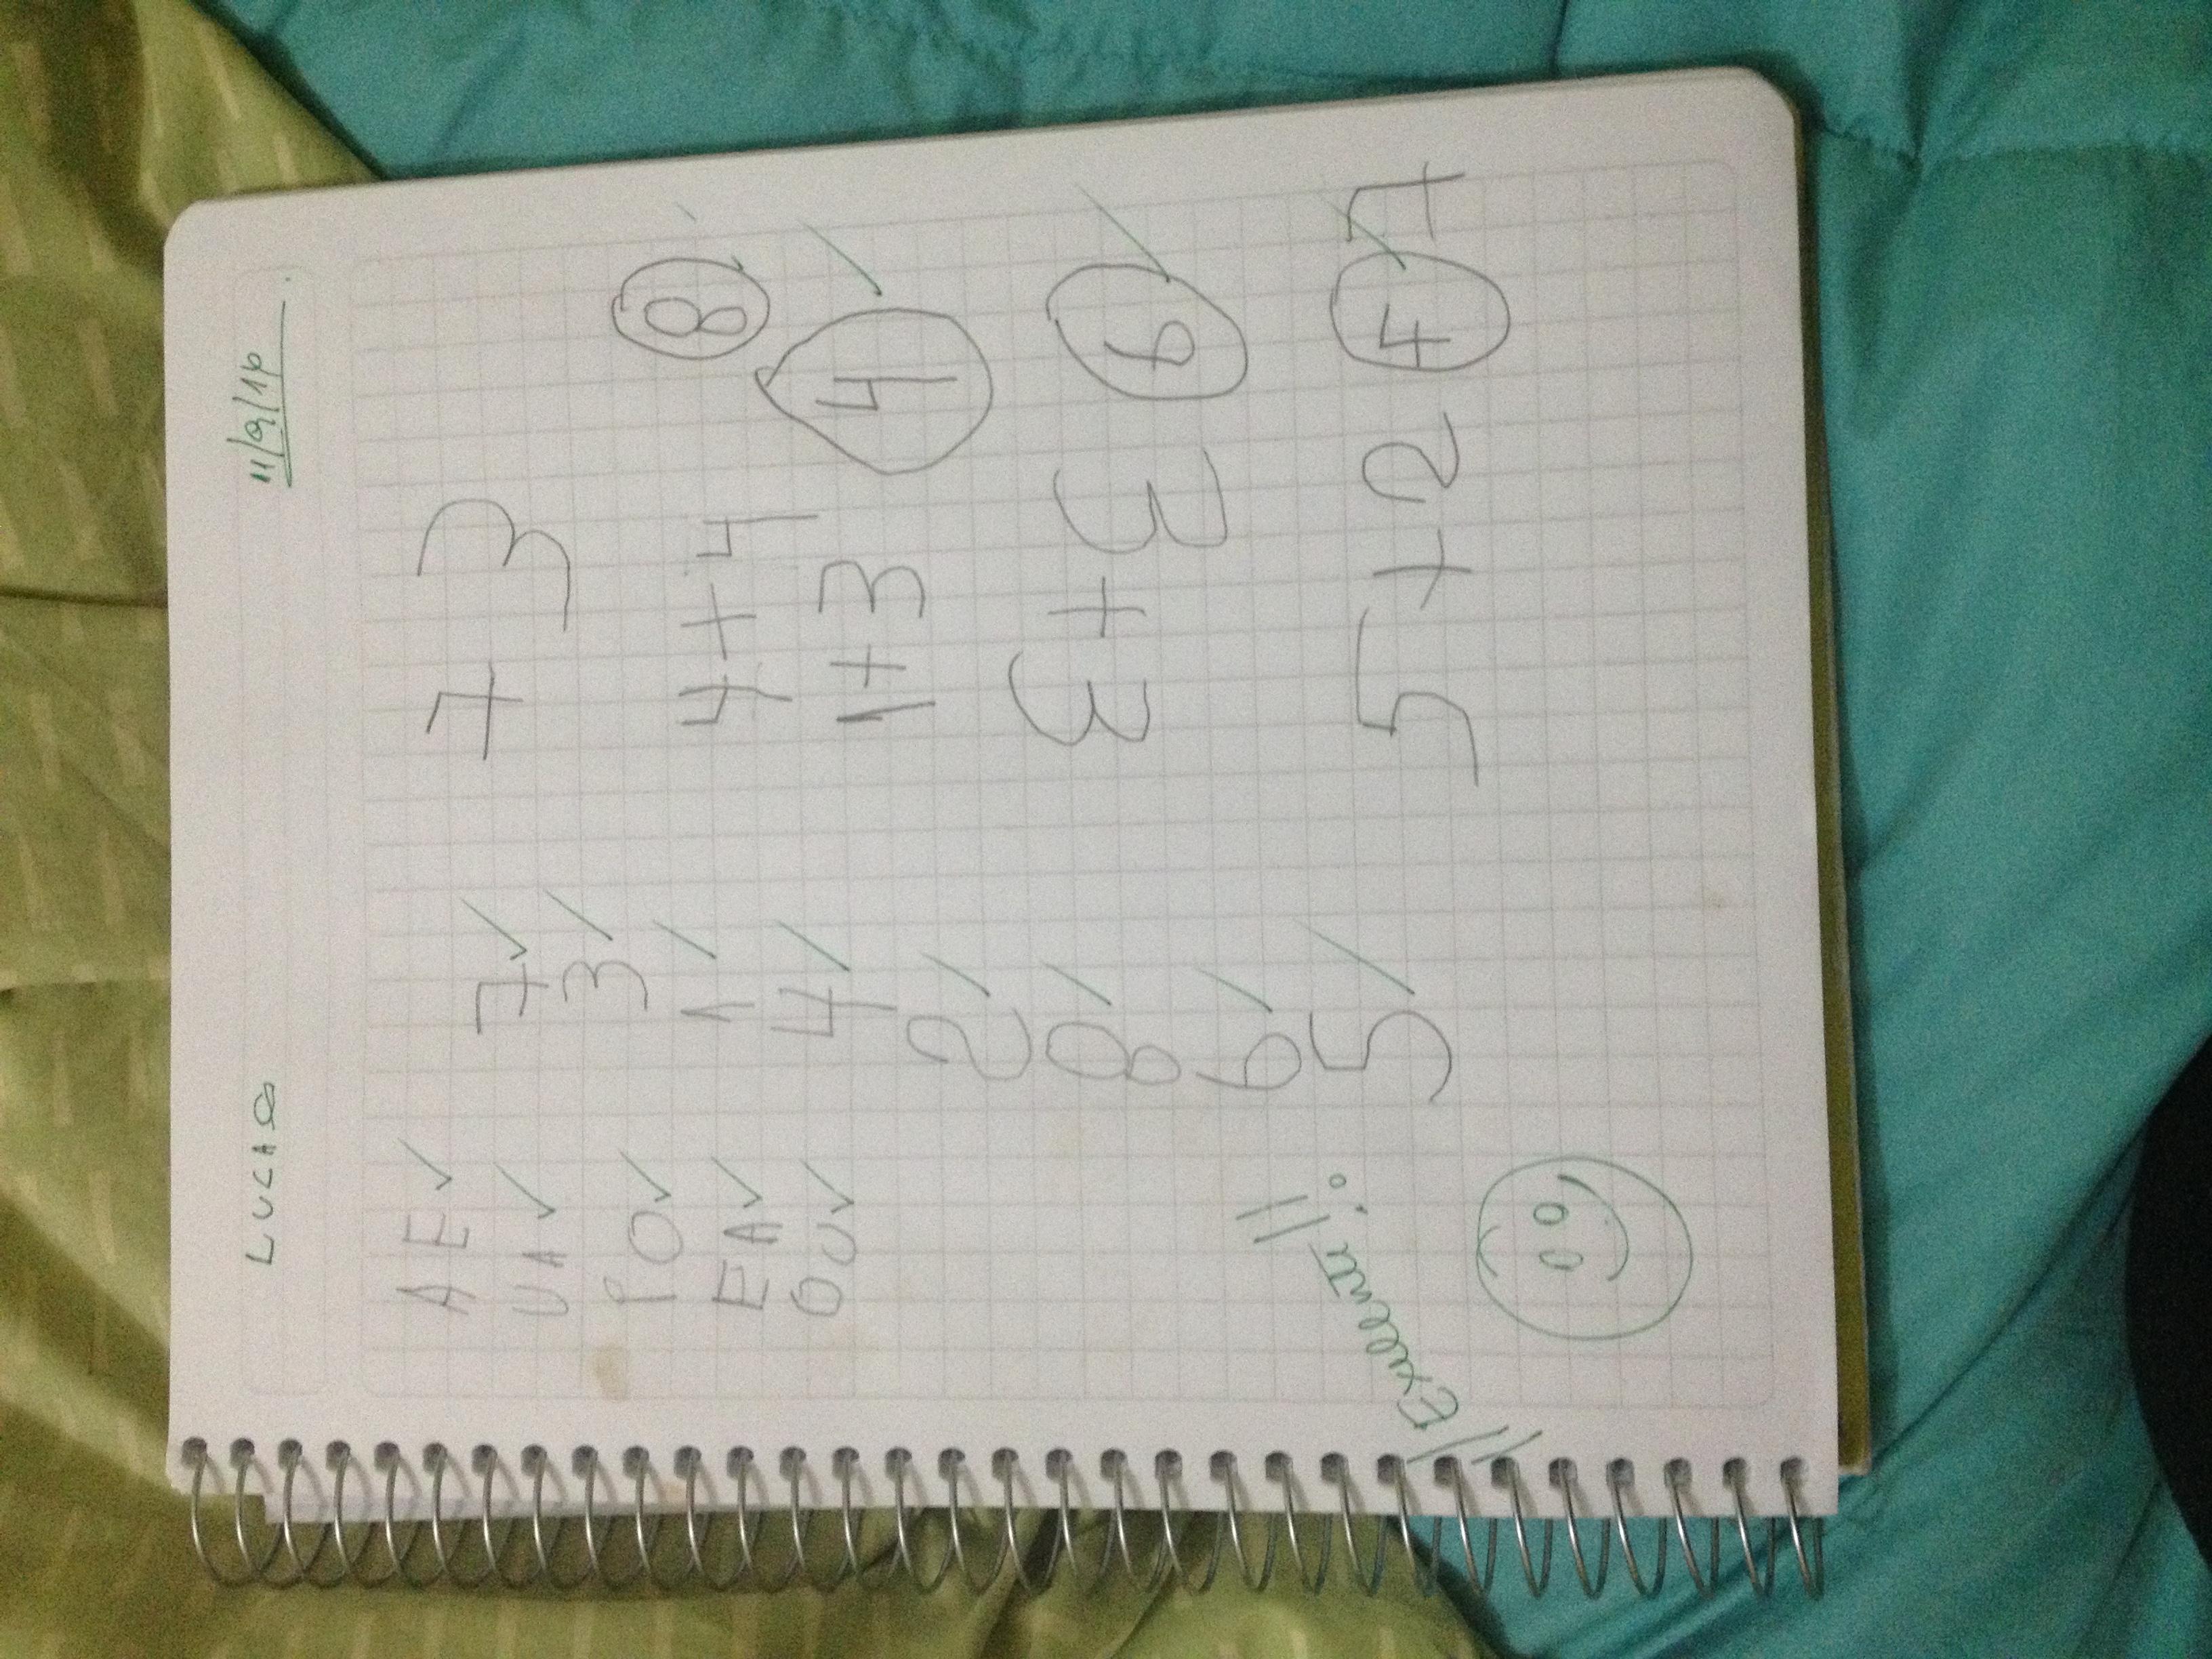 LUCAS 11/9/16
AE
UA
IO
EA
OU
7
3
1
4
2
8
6
5
7 3
4+4 8
1+3 4
3+3 6
5+2 7 7
¡¡Excelente!!